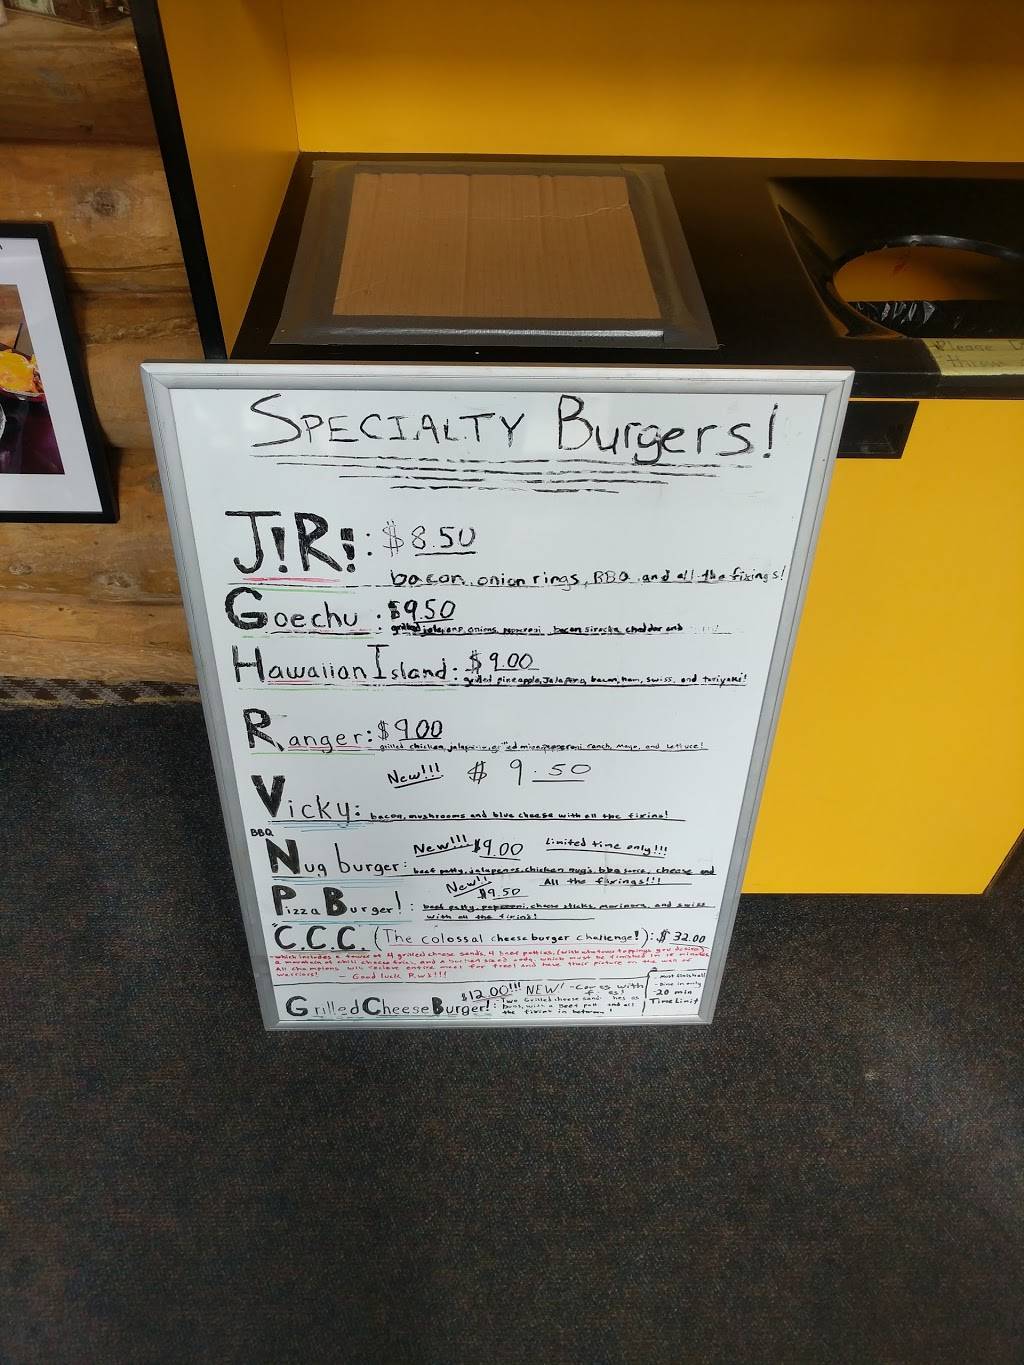 SPECIALTY Burgers!
J!R!: $8.50
bacon, onion rings, BBQ and all the fixings!
Goechu: $9.50
grilled jalapeno, onions, pepperoni, bacon siracha, cheddar and
Hawaiian Island: $9.00
grilled pineapple, Jalapeno, bacon, ham, swiss, and teriyaki!
Ranger: $9.00
grilled chicken, pepperoni ranch, mayo, and lettuce!
New!!! $9.50
Vicky: bacon, mushrooms and blue cheese with all the fixins!
BBQ
New!!! $9.00 Limited time only!!!
Nug burger: beef patty, jalapenos, chicken nugs, bbq sauce, cheese and
All the fixings!!!
New!! $9.50
Pizza Burger!: beef patty, pepperoni, cheese sticks, marinara, and swiss
with all the fixins!
"C.C.C. (The colossal cheeseburger challenge!): $32.00
-which includes a tower of 4 grilled cheese sands, 4 beef patties, (with whatever toppings you desire)
a mountain of chili cheese fries, and a bucket sized soda, which must be finished in 20 minutes
All champions will receive entire meal for free! and have their picture on the wall of
warriors! - Good luck R.W.s!!!
- must finish all
- Dine in only
- 20 min
Time Limit
$12.00!!! NEW! - Comes with
GrilledCheeseBurger!: Two Grilled cheese as
buns, with a Beef and all
the fixins in between!
Please
throw